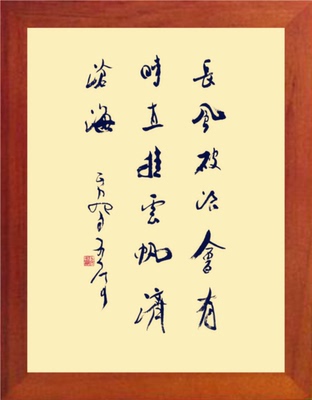 長風破浪會有
時直挂雲帆濟
滄海